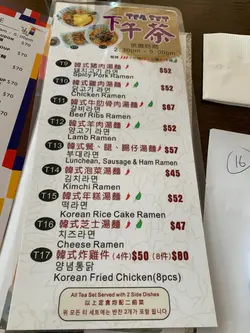 下午茶
2:30pm - 5:00pm
T9 韓式豬肉湯麵 $52
Spicy Pork Ramen
T10 韓式雞肉湯麵 $52
닭고기라면
Chicken Ramen
T11 韓式牛肋骨肉湯麵 $67
갈비라면
Beef Ribs Ramen
T12 韓式羊肉湯麵 $52
양고기라면
Lamb Ramen
T13 韓式餐、腿、腸仔湯麵 $57
부대라면
Luncheon, Sausage & Ham Ramen
T14 韓式泡菜湯麵 $45
김치라면
Kimchi Ramen
T15 韓式年糕湯麵 $52
떡라면
Korean Rice Cake Ramen
T16 韓式芝士湯麵 $47
치즈라면
Cheese Ramen
T17 韓式炸雞件 (4件) $50 (8件) $80
양념통닭
Korean Fried Chicken(8pcs)
All Tea Set Served with 2 Side Dishes
以上定食均配二前菜
위 모든 티 세트에는 반찬 2개가 포함 됩니다
16